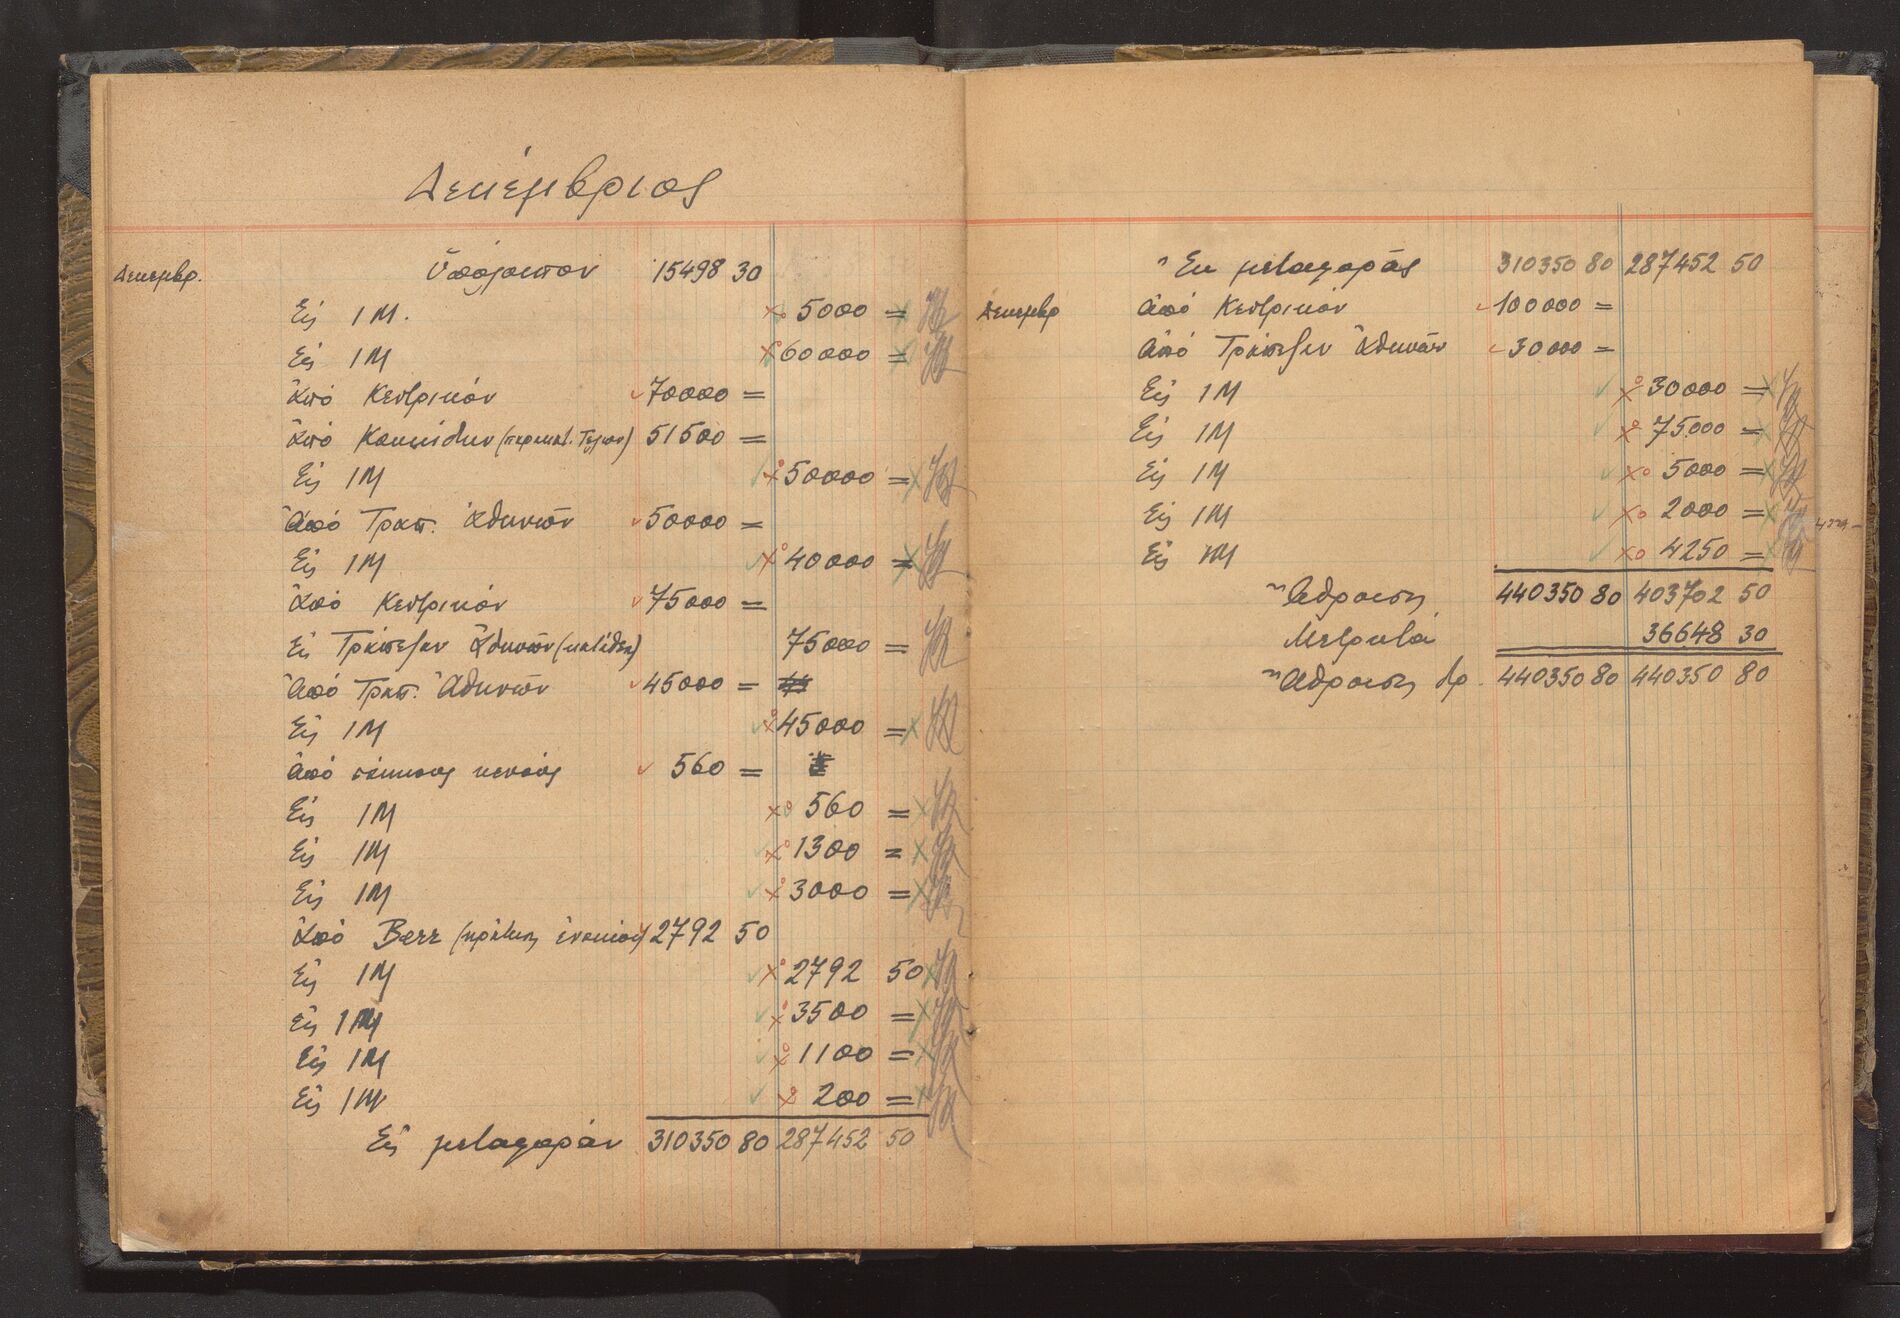 Δεκέμβριος
Δεκεμβρ. Ὑπόλοιπον 15498 30
Εἰς 1Μ. 5000 =
Εἰς 1Μ 60000 =
Ἀπό Κεντρικόν 70000 =
Ἀπό 51500 =
Εἰς 1Μ 50000 =
Ἀπό Τραπ. Ἀθηνῶν 50000 =
Εἰς 1Μ 40000 =
Ἀπό Κεντρικόν 75000 =
Εἰς Τράπεζαν Ἀθηνῶν 75000 =
Ἀπό Τραπ. Ἀθηνῶν 45000 =
Εἰς 1Μ 45000 =
Ἀπό σάκκους κενούς 560 =
Εἰς 1Μ 560 =
Εἰς 1Μ 1300 =
Εἰς 1Μ 3000 =
Ἀπό 2792 50
Εἰς 1Μ 2792 50
Εἰς 1Μ 3500 =
Εἰς 1Μ 1100 =
Εἰς 1Μ 200 =
Εἰς μεταφοράν 310350 80 287452 50
Ἐκ μεταφορᾶς 310350 80 287452 50
Δεκεμβρ Ἀπό Κεντρικόν 100000 =
Ἀπό Τράπεζαν Ἀθηνῶν 30000 =
Εἰς 1Μ 30000 =
Εἰς 1Μ 75000 =
Εἰς 1Μ 5000 =
Εἰς 1Μ 2000 =
Εἰς 1Μ 4250 =
Ἄθροισις 440350 80 403702 50
Μετρητά 36648 30
Ἄθροισις δρ. 440350 80 440350 80